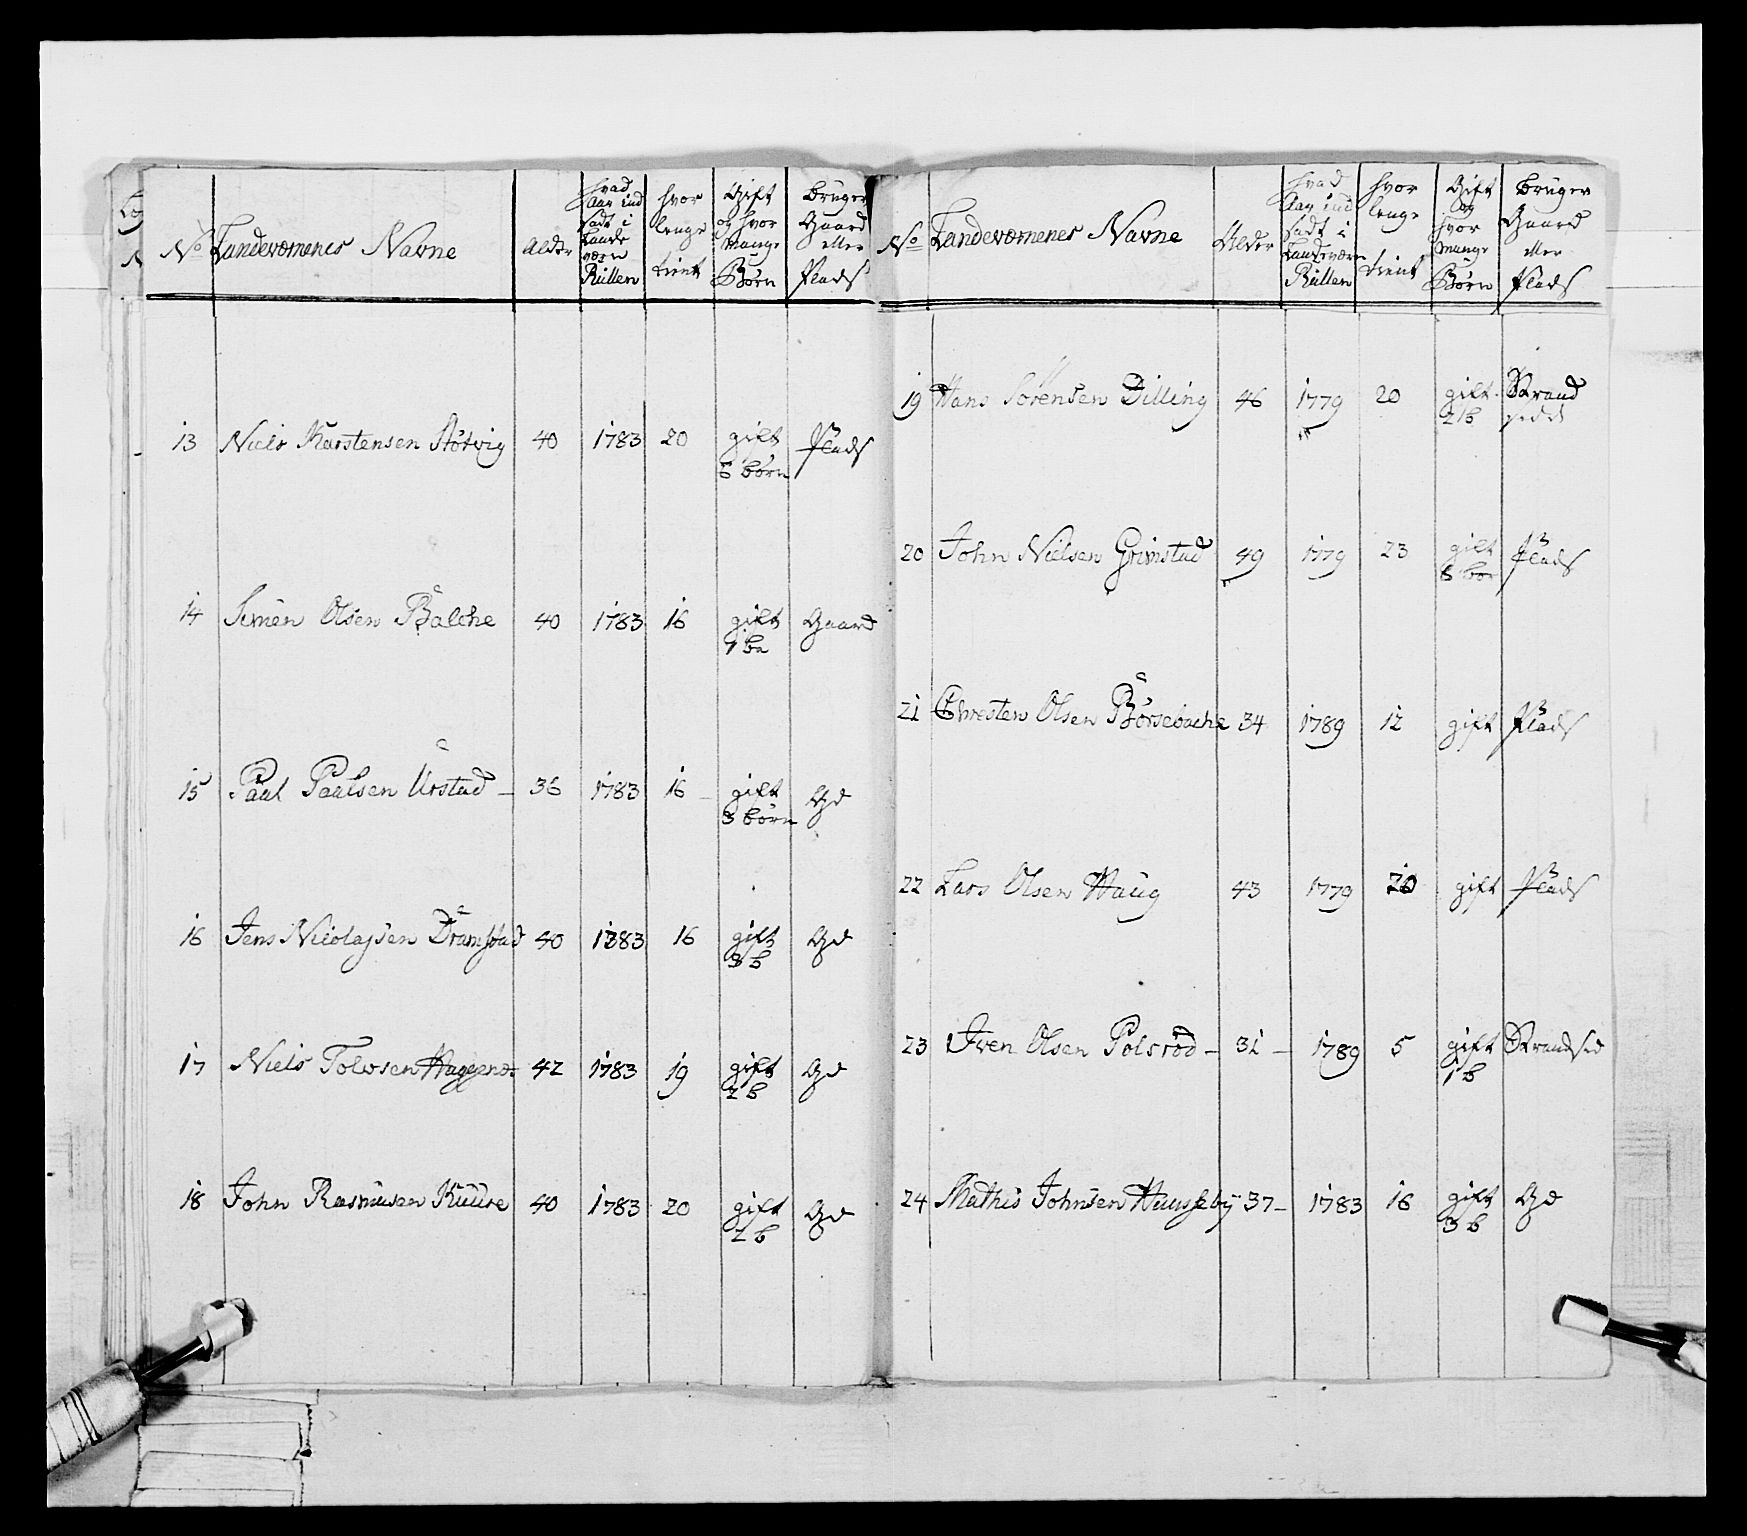 No Landeværnenes Navne Alder hvad Aar ind sadt i Lande værn Rullen hvor lenge tient Gift og hvor mange Børn bruger Gaard eller Plads
13 Niels Karstensen Støtvig 40 1783 20 gift Plads
5 børn
14 Simen Olsen Balche 40 1783 16 gift Gaard
1 bn
15 Paul Paalsen Urstad – 36 1783 16 – gift Gd
3 børn
16 Jens Nicolajsen Dramstad 40 1783 16 gift Gd
3 b
17 Niels Tolvsen 42 1783 19 gift Gd
2 b
18 John Rasmusen Kuure 40 1783 20 gift Gd
2 b
No Landeværnenes Navne Alder hvad Aar ind sadt i Landeværn Rullen hvor lenge tient Gift og hvor mange Børn bruger Gaard eller Plads
19 Hans Sørensen Dilling 46 1779 20 gift Strand
2 b sidd
20 John Nielsen Grimstad 49 1779 23 gift Plads
6 bør
21 Christen Olsen Børsebache 34 1789 12 gift Plads
22 Lars Olsen Haug 43 1779 20 gift Plads
23 Iven Olsen Polsrød – 31 – 1789 5 gift Strandsid
1 b
24 Mathis Johnsen Huuseby 37 – 1783 16 gift Gd
3 b